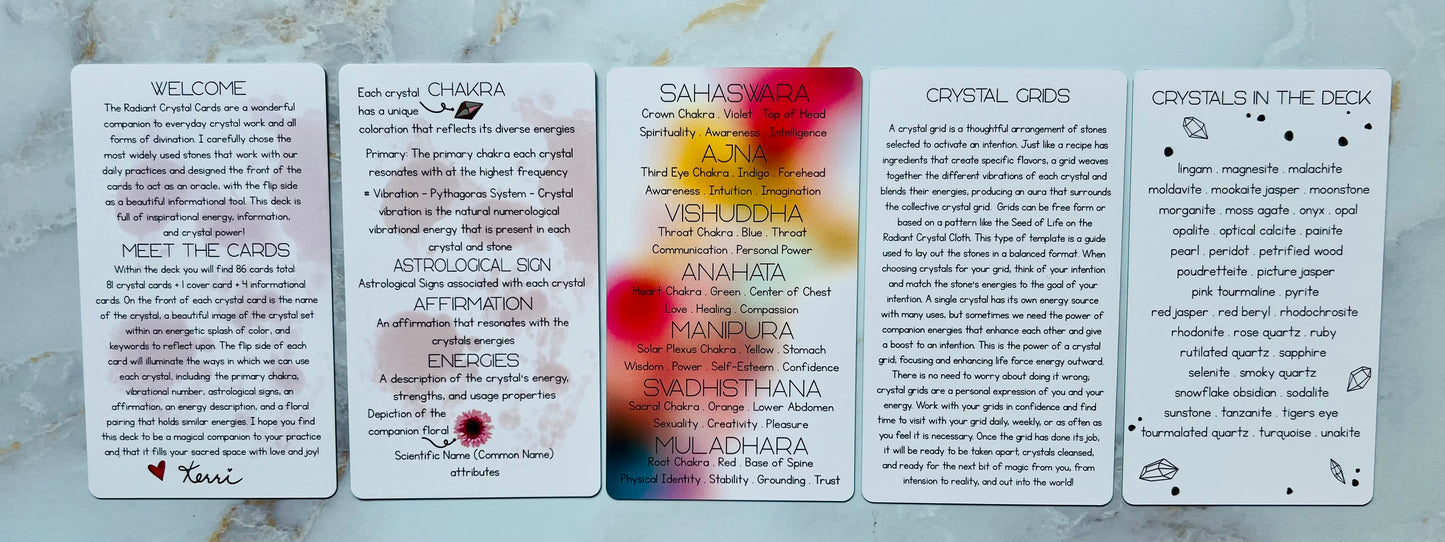 WELCOME
The Radiant Crystal Cards are a wonderful
companion to everyday crystal work and all
forms of divination. I carefully chose the
most widely used stones that work with our
daily practices and designed the front of the
cards to act as an oracle, with the flip side
as a beautiful informational tool. This deck is
full of inspirational energy, information,
and crystal power!
MEET THE CARDS
Within the deck you will find 86 cards total:
81 crystal cards + 1 cover card + 4 informational
cards. On the front of each crystal card is the name
of the crystal, a beautiful image of the crystal set
within an energetic splash of color, and
keywords to reflect upon. The flip side of each
card will illuminate the ways in which we can use
each crystal, including: the primary chakra,
vibrational number, astrological signs, an
affirmation, an energy description, and a floral
pairing that holds similar energies. I hope you find
this deck to be a magical companion to your practice
and that it fills your sacred space with love and joy!
Kerri
Each crystal CHAKRA
has a unique
coloration that reflects its diverse energies
Primary: The primary chakra each crystal
resonates with at the highest frequency
# Vibration - Pythagoras System - Crystal
vibration is the natural numerological
vibrational energy that is present in each
crystal and stone
ASTROLOGICAL SIGN
Astrological Signs associated with each crystal
AFFIRMATION
An affirmation that resonates with the
crystals energies
ENERGIES
A description of the crystal's energy,
strengths, and usage properties
Depiction of the
companion floral
Scientific Name (Common Name)
attributes
SAHASWARA
Crown Chakra . Violet . Top of Head
Spirituality . Awareness . Intelligence
AJNA
Third Eye Chakra . Indigo . Forehead
Awareness . Intuition . Imagination
VISHUDDHA
Throat Chakra . Blue . Throat
Communication . Personal Power
ANAHATA
Heart Chakra . Green . Center of Chest
Love . Healing . Compassion
MANIPURA
Solar Plexus Chakra . Yellow . Stomach
Wisdom . Power . Self-Esteem . Confidence
SVADHISTHANA
Sacral Chakra . Orange . Lower Abdomen
Sexuality . Creativity . Pleasure
MULADHARA
Root Chakra . Red . Base of Spine
Physical Identity . Stability . Grounding . Trust
CRYSTAL GRIDS
A crystal grid is a thoughtful arrangement of stones
selected to activate an intention. Just like a recipe has
ingredients that create specific flavors, a grid weaves
together the different vibrations of each crystal and
blends their energies, producing an aura that surrounds
the collective crystal grid. Grids can be free form or
based on a pattern like the Seed of Life on the
Radiant Crystal Cloth. This type of template is a guide
used to lay out the stones in a balanced format. When
choosing crystals for your grid, think of your intention
and match the stone's energies to the goal of your
intention. A single crystal has its own energy source
with many uses, but sometimes we need the power of
companion energies that enhance each other and give
a boost to an intention. This is the power of a crystal
grid; focusing and enhancing life force energy outward.
There is no need to worry about doing it wrong;
crystal grids are a personal expression of you and your
energy. Work with your grids in confidence and find
time to visit with your grid daily, weekly, or as often as
you feel it is necessary. Once the grid has done its job,
it will be ready to be taken apart, crystals cleansed,
and ready for the next bit of magic from you, from
intension to reality, and out into the world!
CRYSTALS IN THE DECK
lingam . magnesite . malachite
moldavite . mookaite jasper . moonstone
morganite . moss agate . onyx . opal
opalite . optical calcite . painite
pearl . peridot . petrified wood
poudretteite . picture jasper
pink tourmaline . pyrite
red jasper . red beryl . rhodochrosite
rhodonite . rose quartz . ruby
rutilated quartz . sapphire
selenite . smoky quartz
snowflake obsidian . sodalite
sunstone . tanzanite . tigers eye
tourmalated quartz . turquoise . unakite